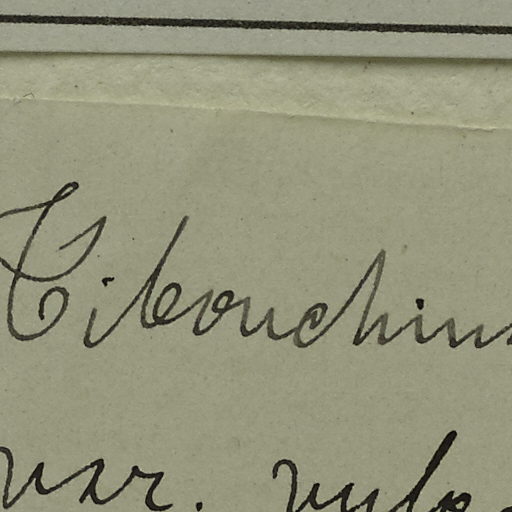 Tibouchin
var.